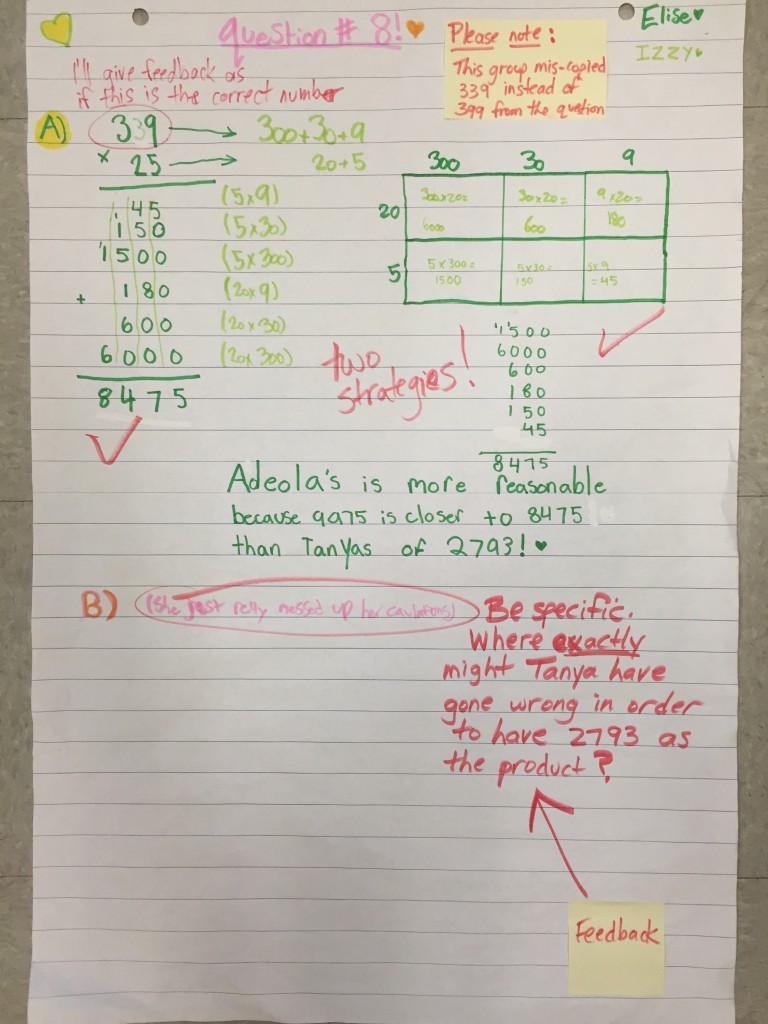 Question # 8!
Elise
IZZY
Please note:
This group mis-copied
339 instead of
399 from the question
I'll give feedback as
if this is the correct number
A) 339 → 300+30+9
× 25 → 20+5
45 (5×9)
150 (5×30)
1500 (5×300)
+ 180 (20×9)
600 (20×30)
6000 (20×300)
8475
300 30 9
20 300×20= 30×20= 9×20=
6000 600 180
5 5×300= 5×30= 5×9
1500 150 =45
two
strategies!
1500
6000
600
180
150
45
8475
Adeola's is more reasonable
because 9975 is closer to 8475
than Tanyas of 2793!
B) (She just relly messed up her caulations)
Be specific.
Where exactly
might Tanya have
gone wrong in order
to have 2793 as
the product?
Feedback